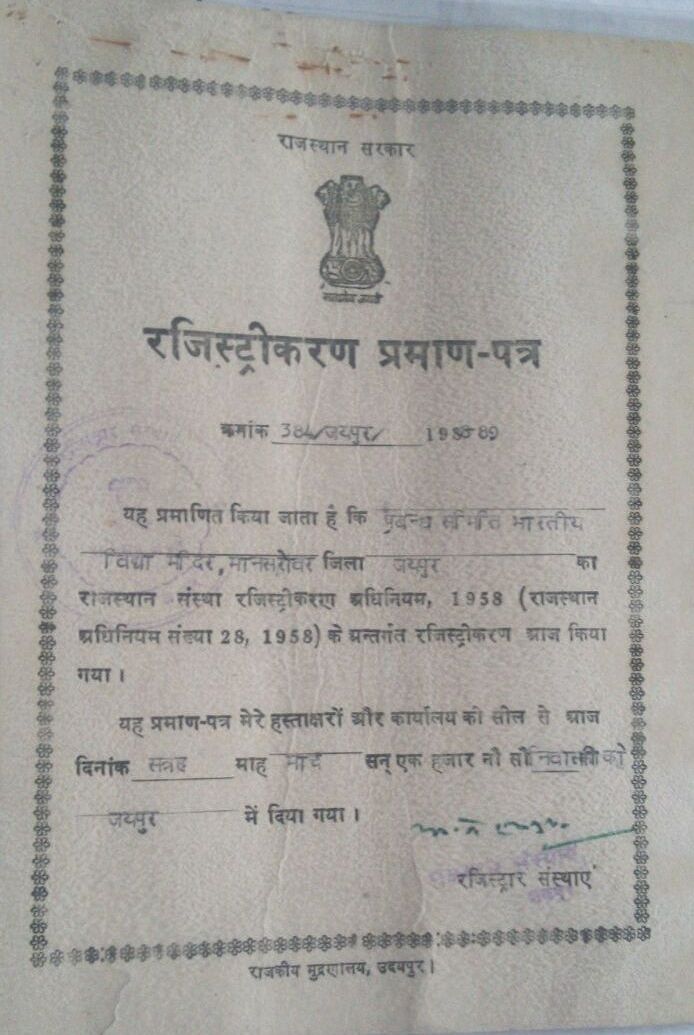 राजस्थान सरकार
सत्यमेव जयते
रजिस्ट्रीकरण प्रमाण-पत्र
क्रमांक 384/जयपुर/ 1988-89
यह प्रमाणित किया जाता है कि प्रबन्ध समिति भारतीय
विद्या मंदिर, मानसरोवर जिला जयपुर का
राजस्थान संस्था रजिस्ट्रीकरण अधिनियम, 1958 (राजस्थान
अधिनियम संख्या 28, 1958) के अन्तर्गत रजिस्ट्रीकरण आज किया
गया।
यह प्रमाण-पत्र मेरे हस्ताक्षरों और कार्यालय की सील से आज
दिनांक सत्रह माह मार्च सन् एक हजार नौ सौ नवासी को
जयपुर में दिया गया।
रजिस्ट्रार संस्थाएं
राजकीय मुद्रणालय, उदयपुर।